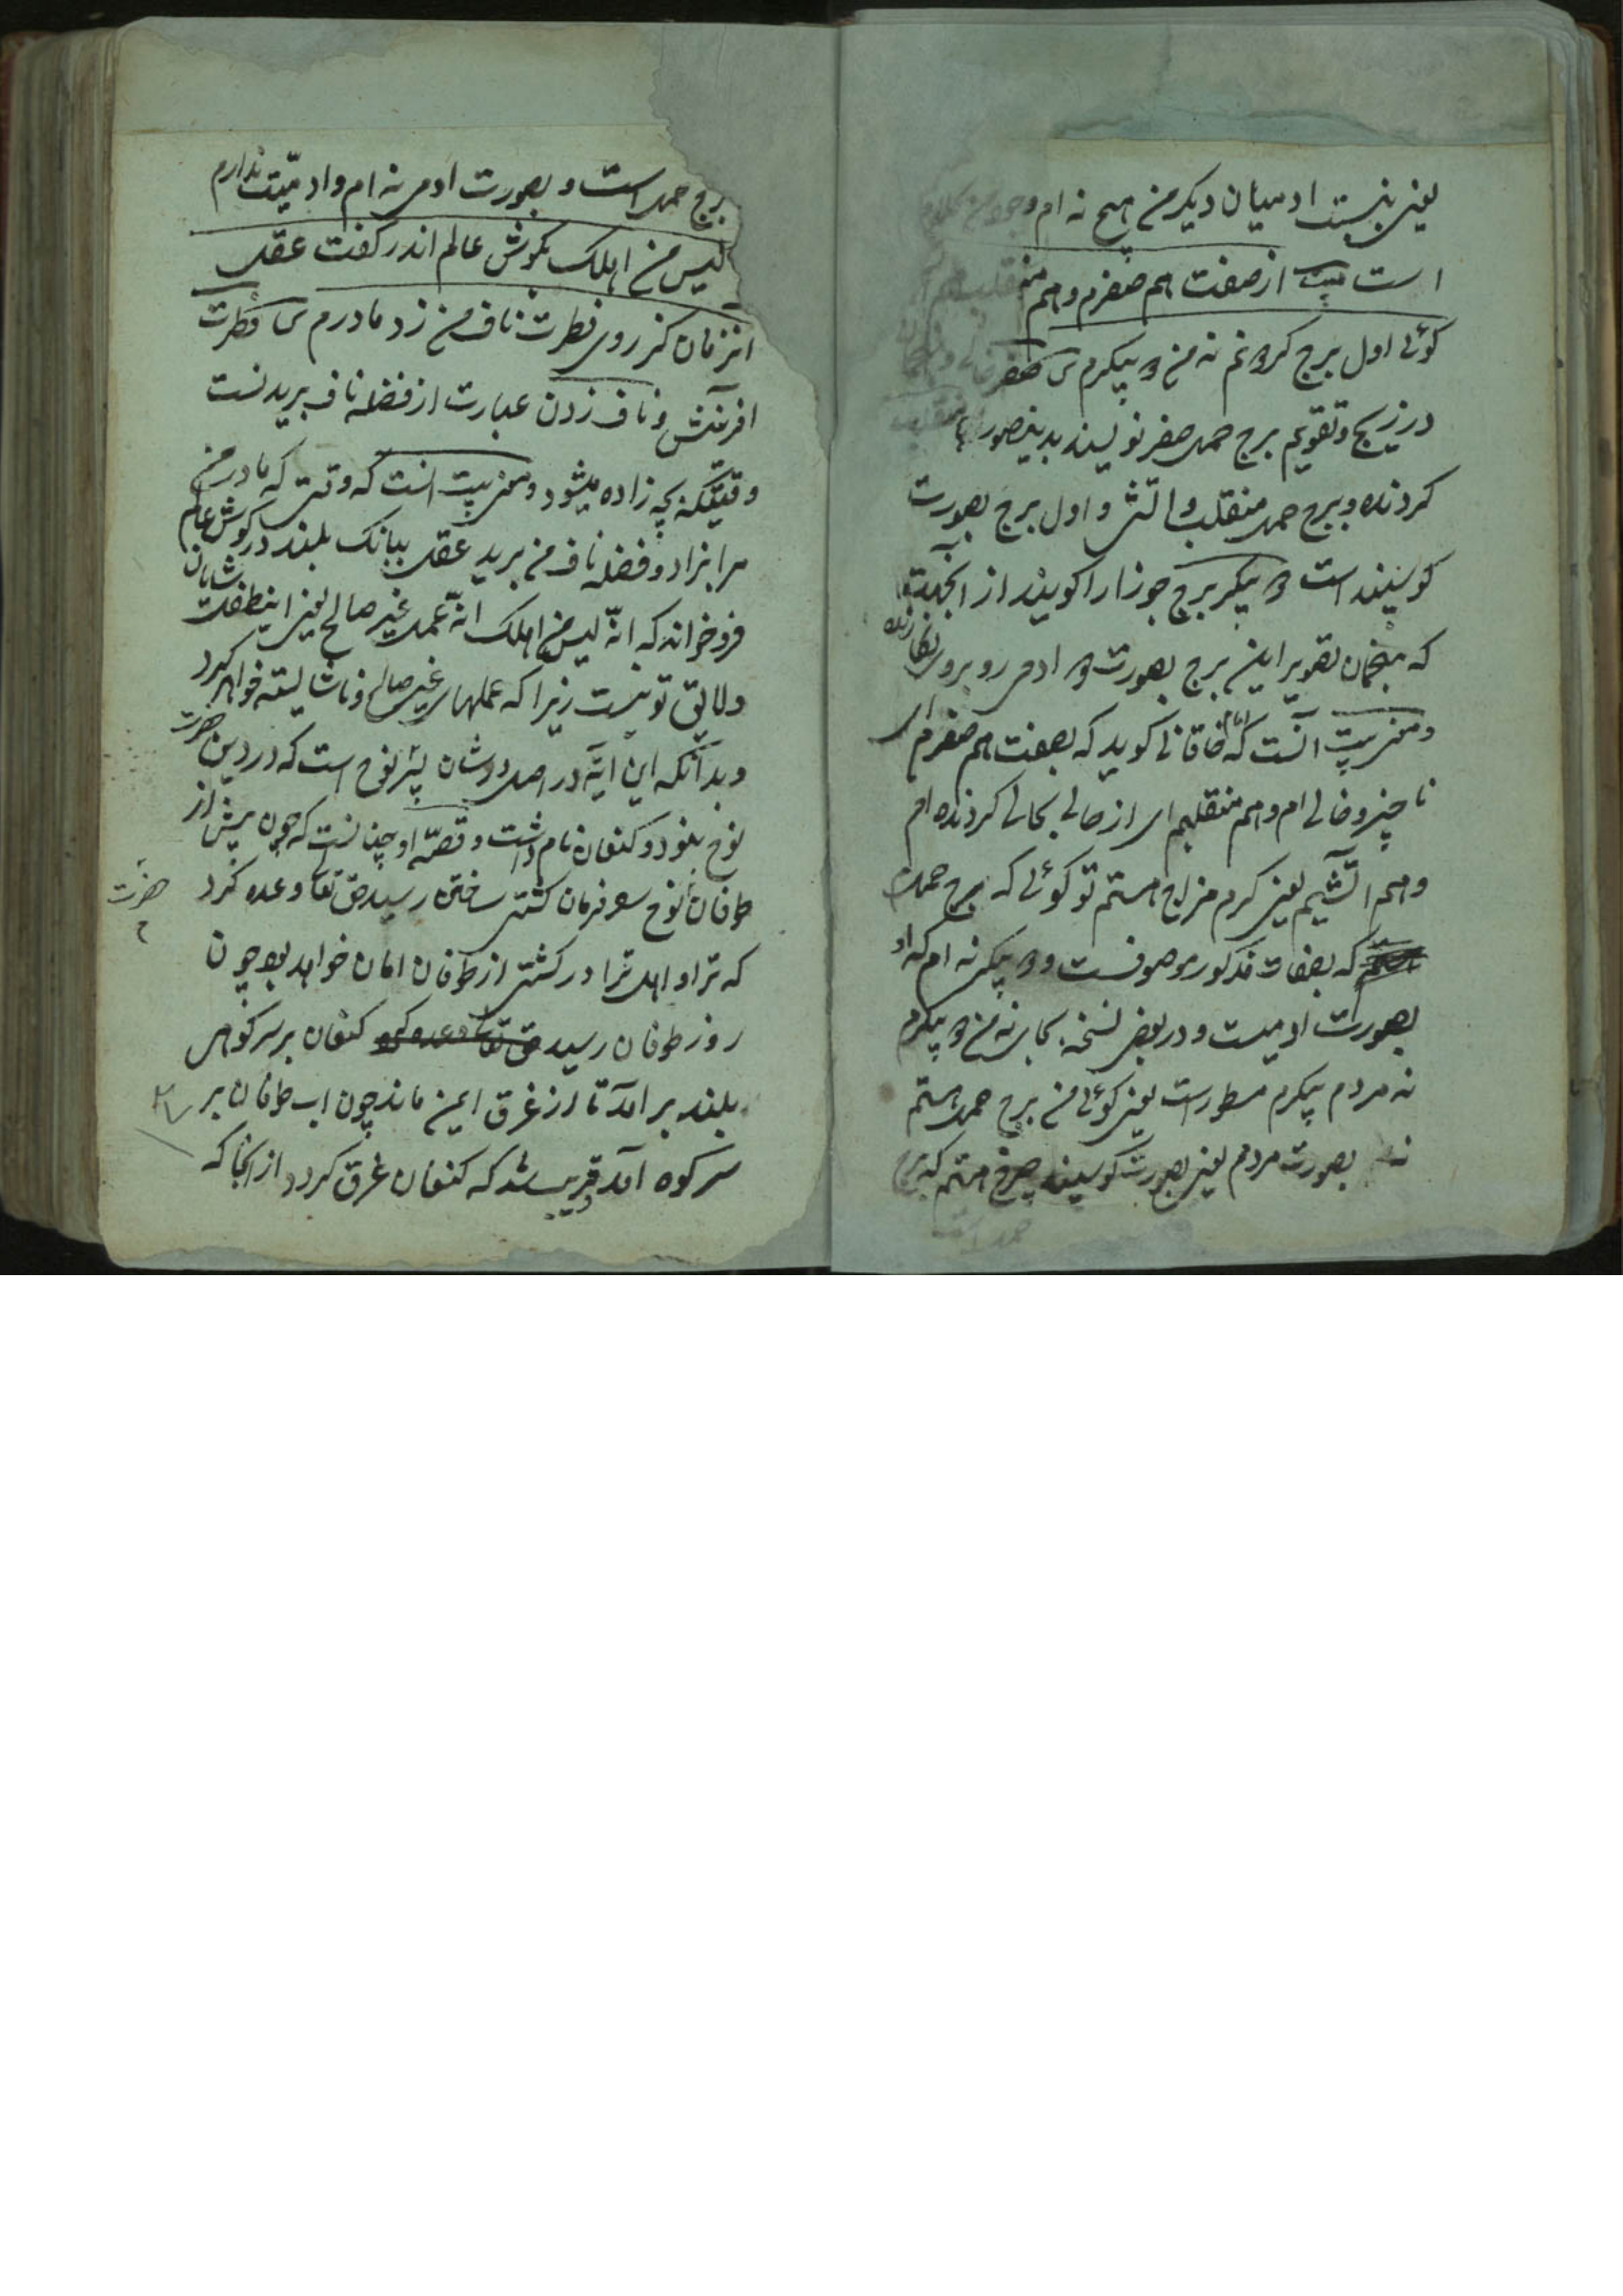 یعنی بنسبت ادمیان دیکر من هیچ نه ام وجود من
است بیت از صفت هم صفرم وهم منقلب هم
کوئی اول برج کردونم نه من دو پیکرم ش صفر خالی و
در زیج وتقویم برج حمل صفر نویسند بدینصورت
کردنده وبرج حمل منقلب واتشی واول برج بصورت
کوسپند است دو پیکر برج جوزا را کویند از انجهت
که منجمان تصویر این برج بصورت دو ادمی روبروی نکارند
ومعنی بیت آنست که خاقانی کوید که بصفت هم صفرم ای
ناچیز وخالی ام وهم منقلبم ای از حالی بحالی کردنده ام
وهم آتشیم یعنی کرم مزاج هستم تو کوئی که برج حملم
که بصفات مذکور موصوفست ودو پیکر نه ام که او
بصورت ادمیست ودر بعض نسخه بجای نه من دو پیکرم
نه مردم پیکرم مسطور است یعنی کوئی من برج حمل هستم
نه بصورت مردم یعنی بصورت کوسپند هستم که برج
برج حمل است وبصورت ادمی نه ام وادمیّت ندارم
لیس من اهلک بکوش عالم اندر کفت عقل
انزمان کز روی فطرت ناف من زد مادرم ش فطرت
افرینش وناف زدن عبارت از فضله ناف بریدنست
وقتیکه بچه زاده میشود ومعنی بیت انست که وقتی که مادر من
مرا بزاد وفضله ناف من برید عقل ببانک بلند در کوش عالم
فرو خواند که انّه لیس من اهلک انّه عمل غیر صالح یعنی اینطفلت شایان
ولایق تو نیست زیرا که عملهای غیر صالح وناشایسته خواهد کرد
وبدآنکه این ایّه در اصل در شان پسر نوح است که در دین حضرت
نوح نبود وکنعان نام داشت وقصّه او چنانست که چون پیش از
طوفان نوح بفرمان کشتی ساختن رسید حق تعا وعده کرد
حضرت
که ترا واهل ترا در کشتی از طوفان امان خواهد بود چون
روز طوفان رسید حق تعا وعده کرد کنعان بر سر کوهی
بلند بر امد تا از غرق ایمن ماند چون اب طوفان بر
سر کوه امد قریب شد که کنعان غرق کردد از انجا که